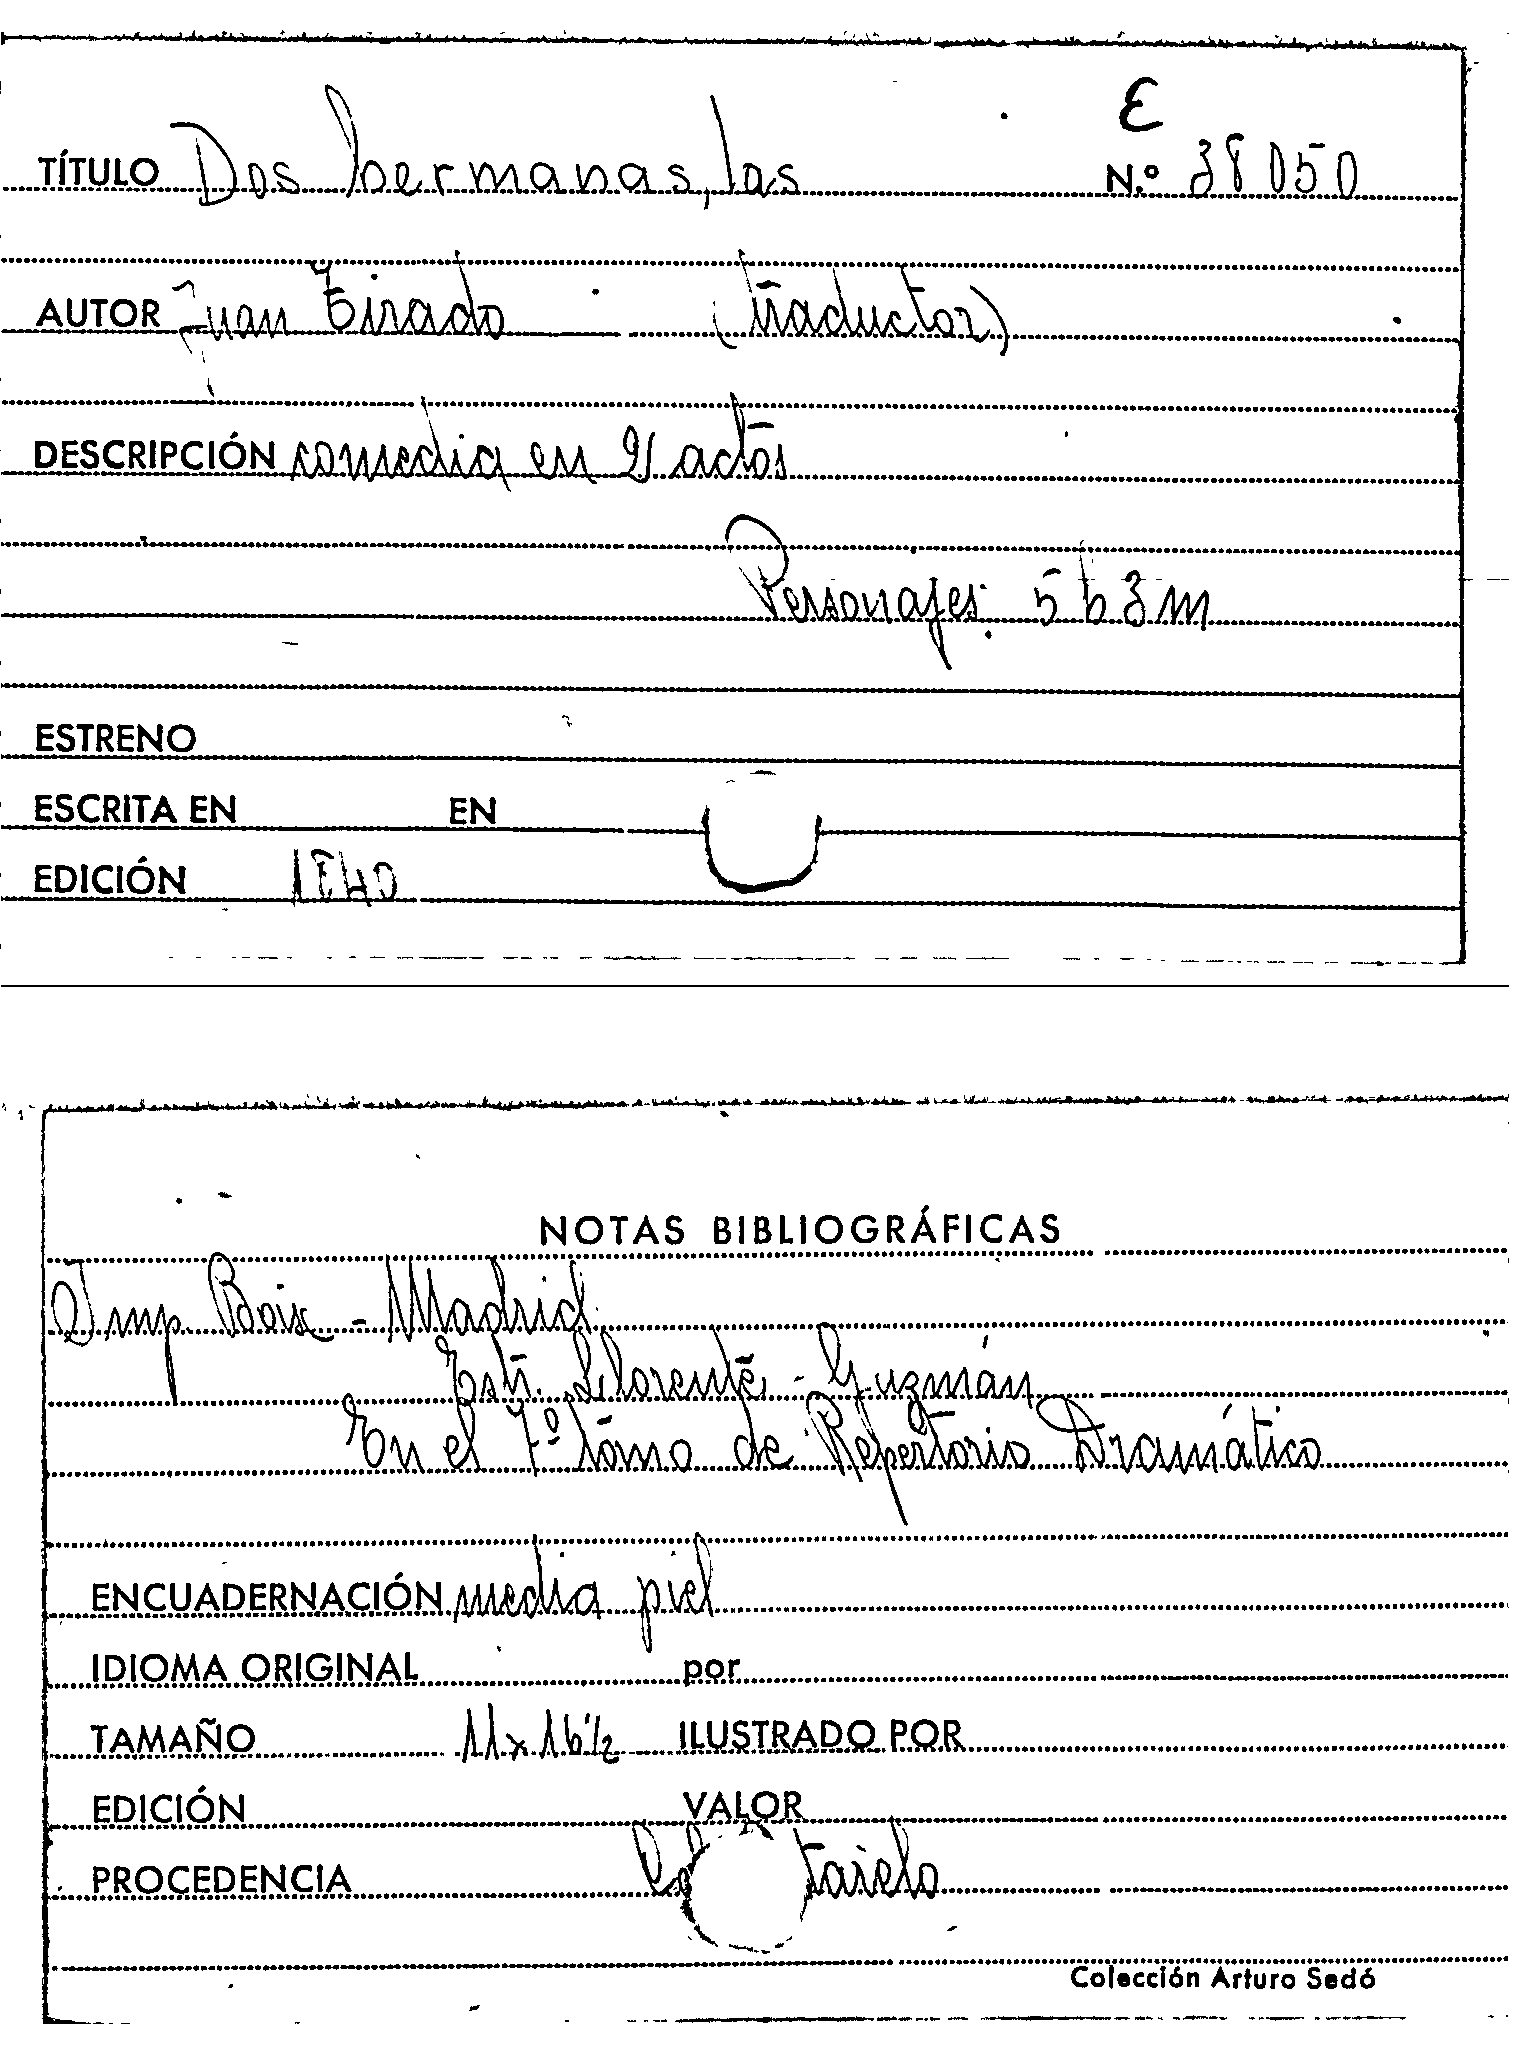 E
TÍTULO Dos hermanas, las N.º 38050
AUTOR Juan Tirado (traductor)
DESCRIPCIÓN comedia en 2 actos
Personajes: 5 h 3 m
ESTRENO
ESCRITA EN EN
EDICIÓN 1840
NOTAS BIBLIOGRÁFICAS
Imp. Boix - Madrid
Estr. Llorente - Guzmán
En el 7º tomo de Repertorio Dramático
ENCUADERNACIÓN media piel
IDIOMA ORIGINAL por
TAMAÑO 11 x 16 1/2 ILUSTRADO POR
EDICIÓN VALOR
PROCEDENCIA
Colección Arturo Sedó